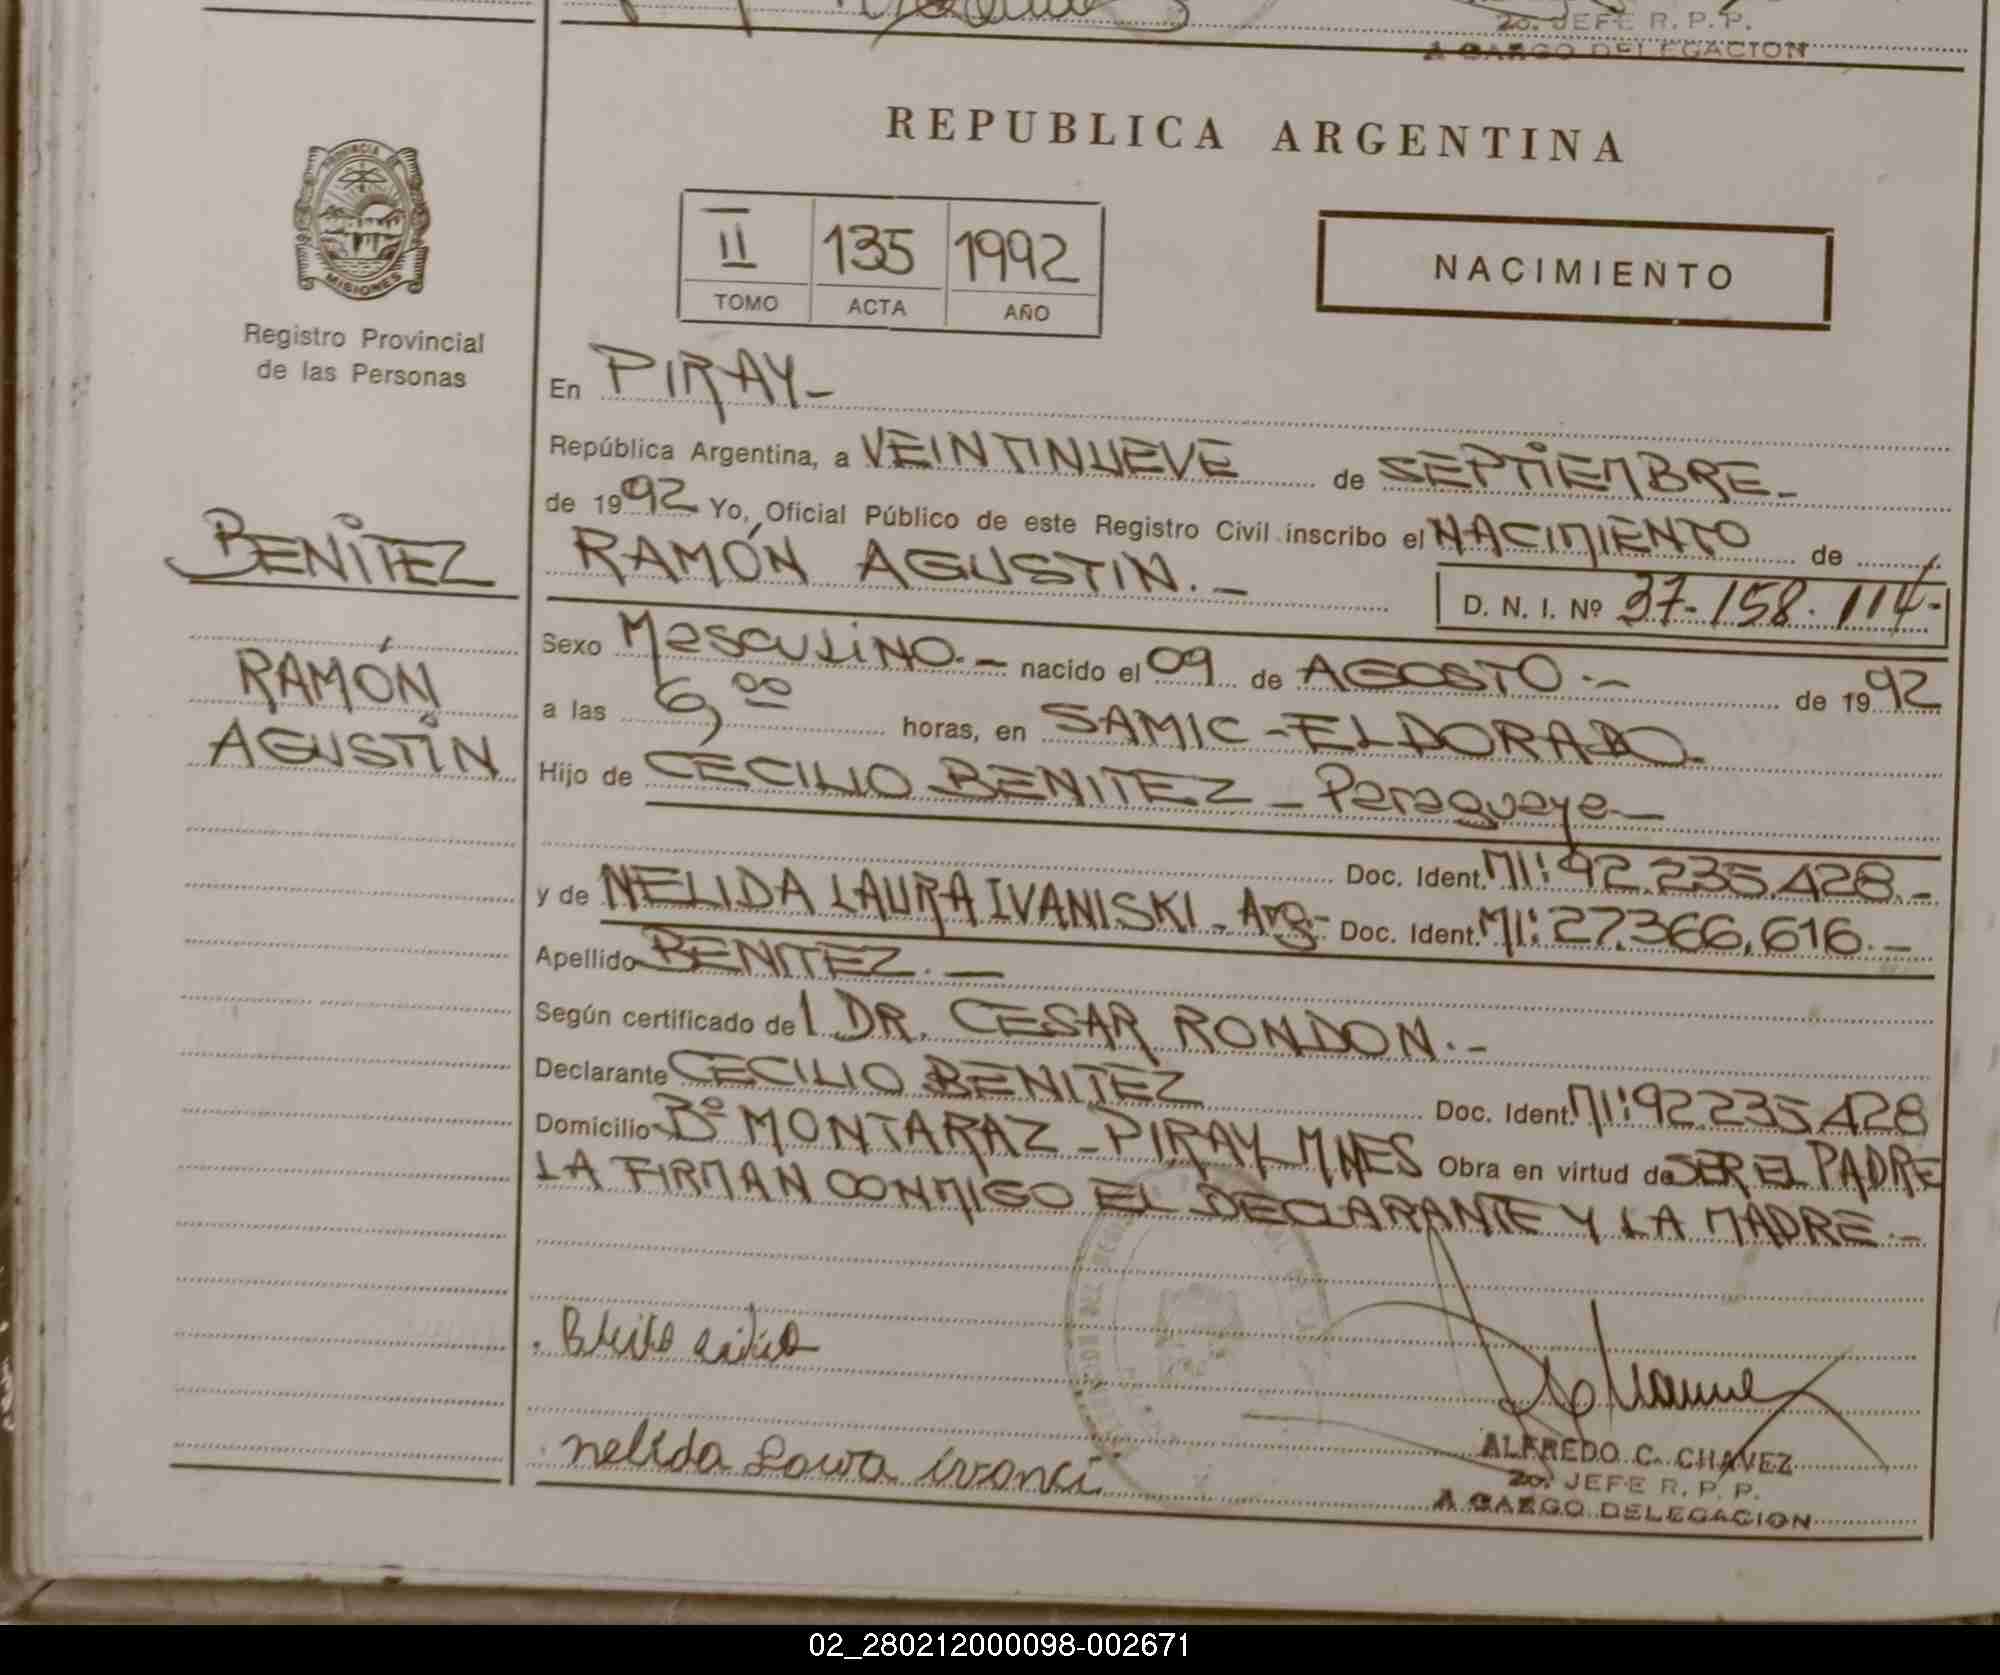 2o. JEFE R. P. P.
A CARGO DELEGACION
REPUBLICA ARGENTINA
PROVINCIA DE
MISIONES
Registro Provincial
de las Personas
II 135 1992
TOMO ACTA AÑO
NACIMIENTO
En PIRAY-
República Argentina, a VEINTINUEVE de SEPTIEMBRE-
de 1992 Yo, Oficial Público de este Registro Civil inscribo el NACIMIENTO de
BENITEZ
RAMÓN AGUSTIN.-
D. N. I. Nº 37-158.114-
RAMÓN
AGUSTÍN
Sexo Masculino.- nacido el 09 de AGOSTO.- de 1992
a las 6,00 horas, en SAMIC-ELDORADO-
Hijo de CECILIO BENITEZ - Paraguaya-
Doc. Ident. MI: 92.235.428.-
y de NELIDA LAURA IVANISKI - Arg- Doc. Ident. MI: 27.366.616.-
Apellido BENITEZ.-
Según certificado de l DR. CESAR RONDON.-
Declarante CECILIO BENITEZ Doc. Ident. MI: 92.235.428
Domicilio Bº MONTARAZ - PIRAY MNES Obra en virtud de SER EL PADRE
LA FIRMAN CONMIGO EL DECLARANTE Y LA MADRE.-
nelida
ALFREDO C. CHAVEZ
2o. JEFE R. P. P.
A CARGO DELEGACION
02_280212000098-002671